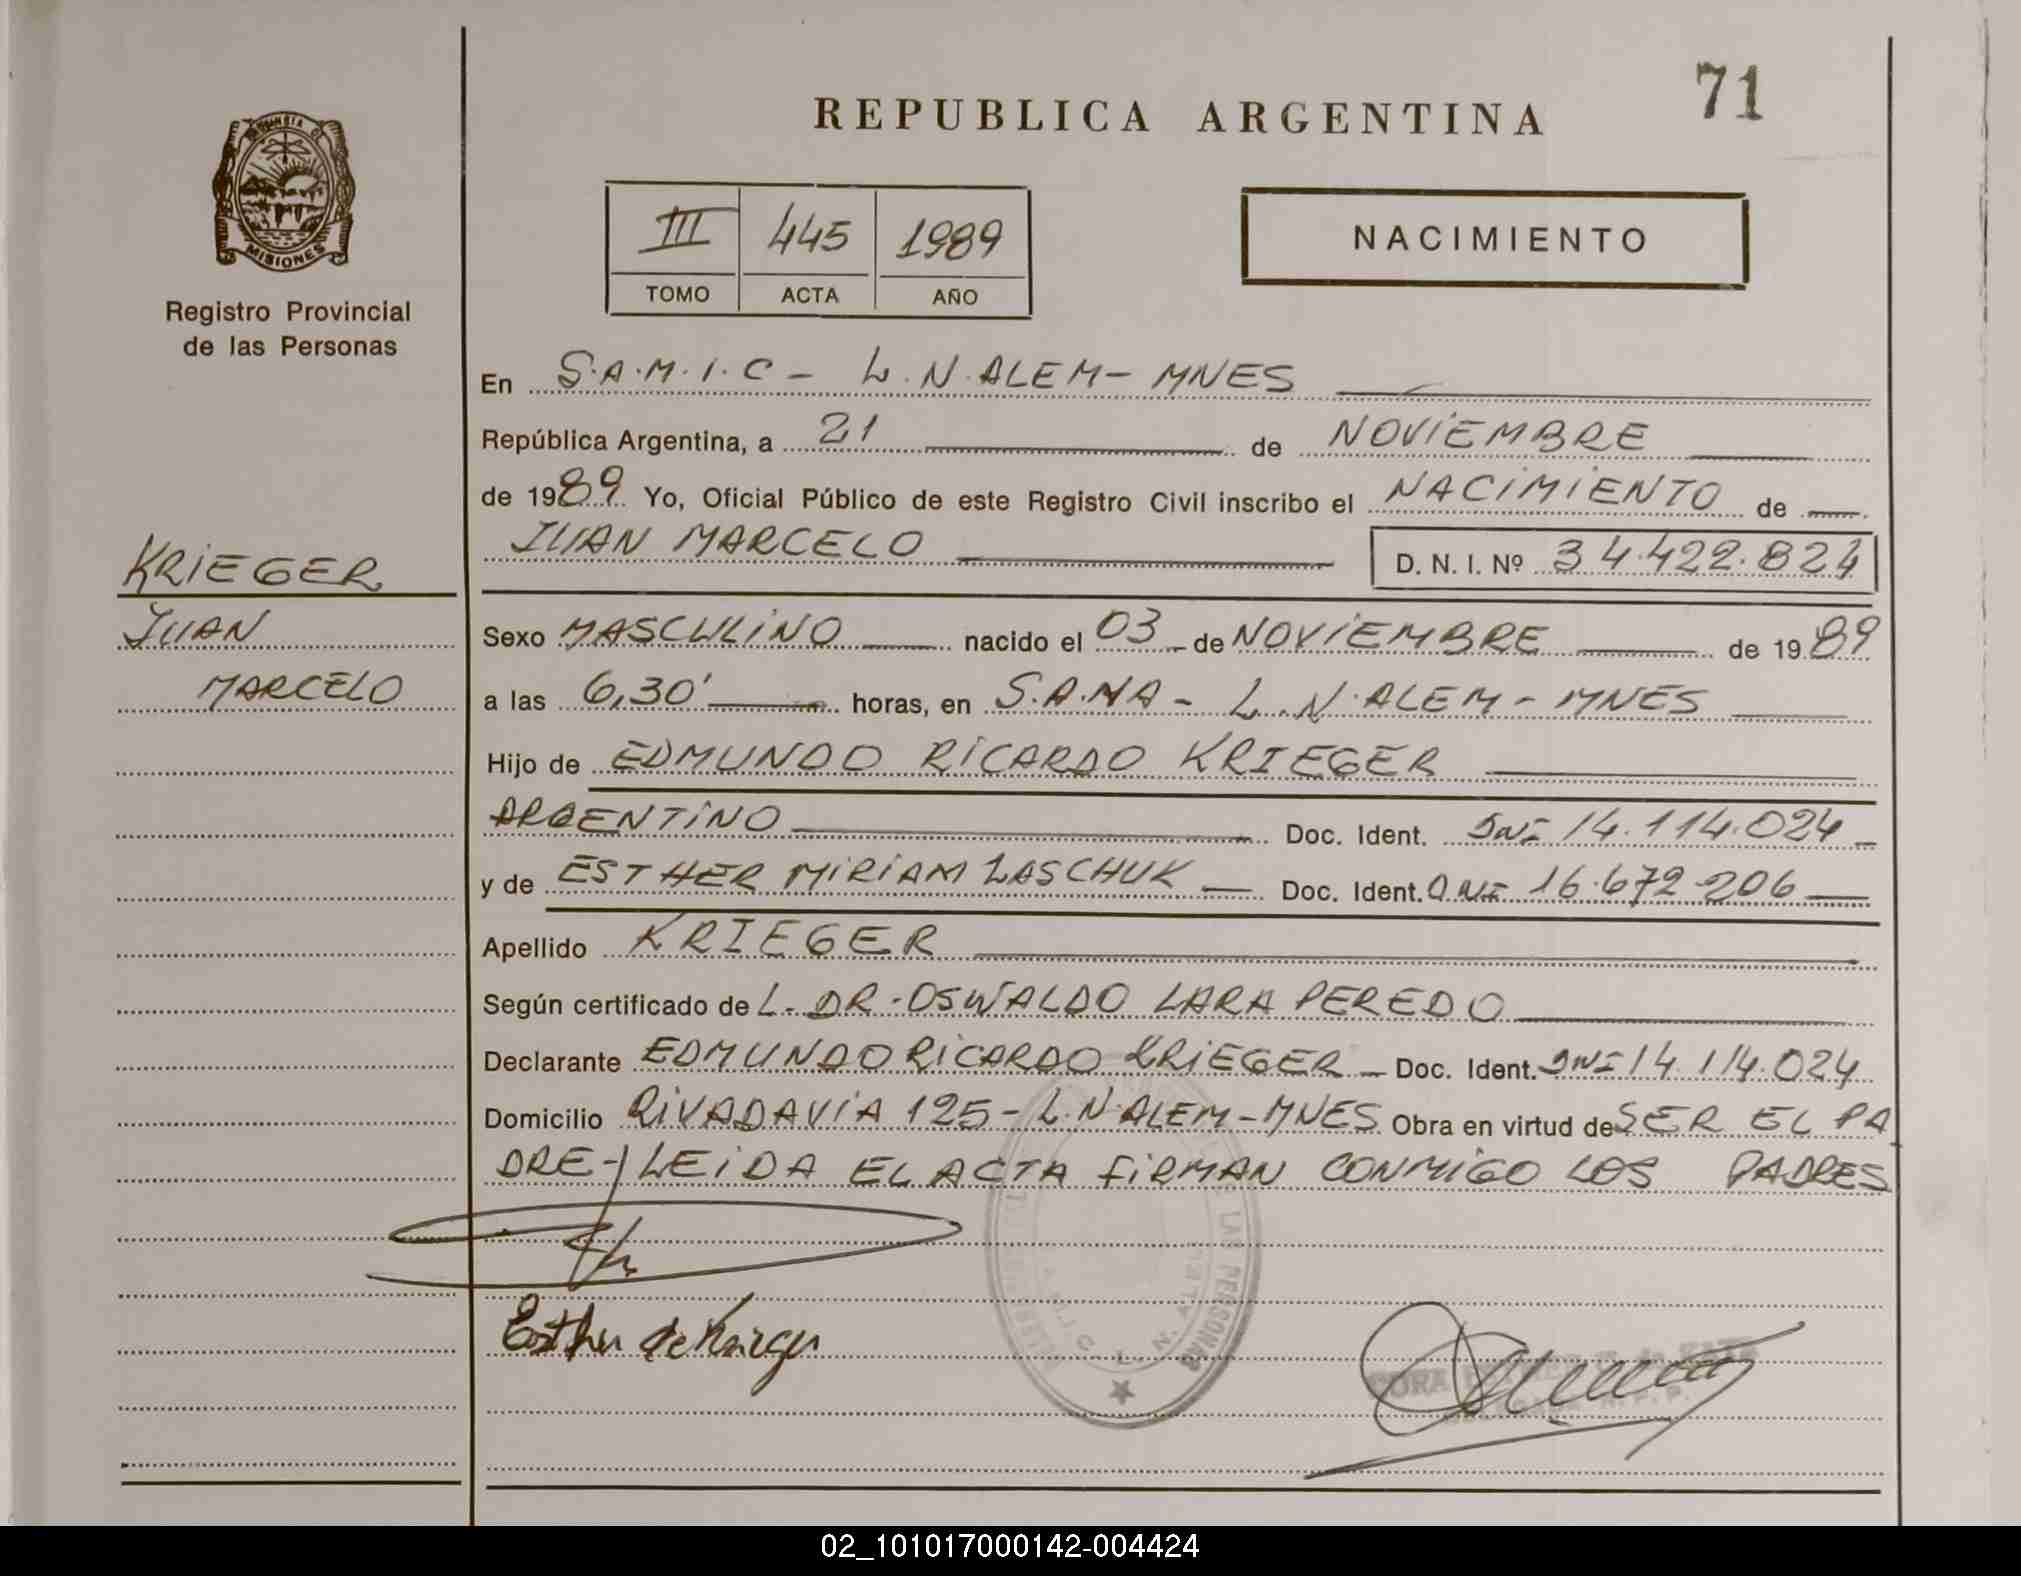 71
REPUBLICA ARGENTINA
PROVINCIA DE
MISIONES
Registro Provincial
de las Personas
III 445 1989
TOMO ACTA AÑO
NACIMIENTO
En S.A.M.I.C - L.N.ALEM - MNES
República Argentina, a 21 de NOVIEMBRE
de 1989 Yo, Oficial Público de este Registro Civil inscribo el NACIMIENTO de
JUAN MARCELO D.N.I. Nº 34.422.824
KRIEGER
JUAN
MARCELO
Sexo MASCULINO nacido el 03 de NOVIEMBRE de 1989
a las 6,30' horas, en S.A.MA - L.N.ALEM - MNES
Hijo de EDMUNDO RICARDO KRIEGER
ARGENTINO Doc. Ident. DNI 14.114.024
y de ESTHER MIRIAM LASCHUK Doc. Ident. DNI 16.672.206
Apellido KRIEGER
Según certificado de L. DR. OSWALDO LARA PEREDO
Declarante EDMUNDO RICARDO KRIEGER - Doc. Ident. DNI 14.114.024
Domicilio RIVADAVIA 125 - L.N.ALEM - MNES Obra en virtud de SER EL PA
DRE - LEIDA EL ACTA FIRMAN CONMIGO LOS PADRES
Esther de Krieger
DE LAS PERSONAS
02_101017000142-004424